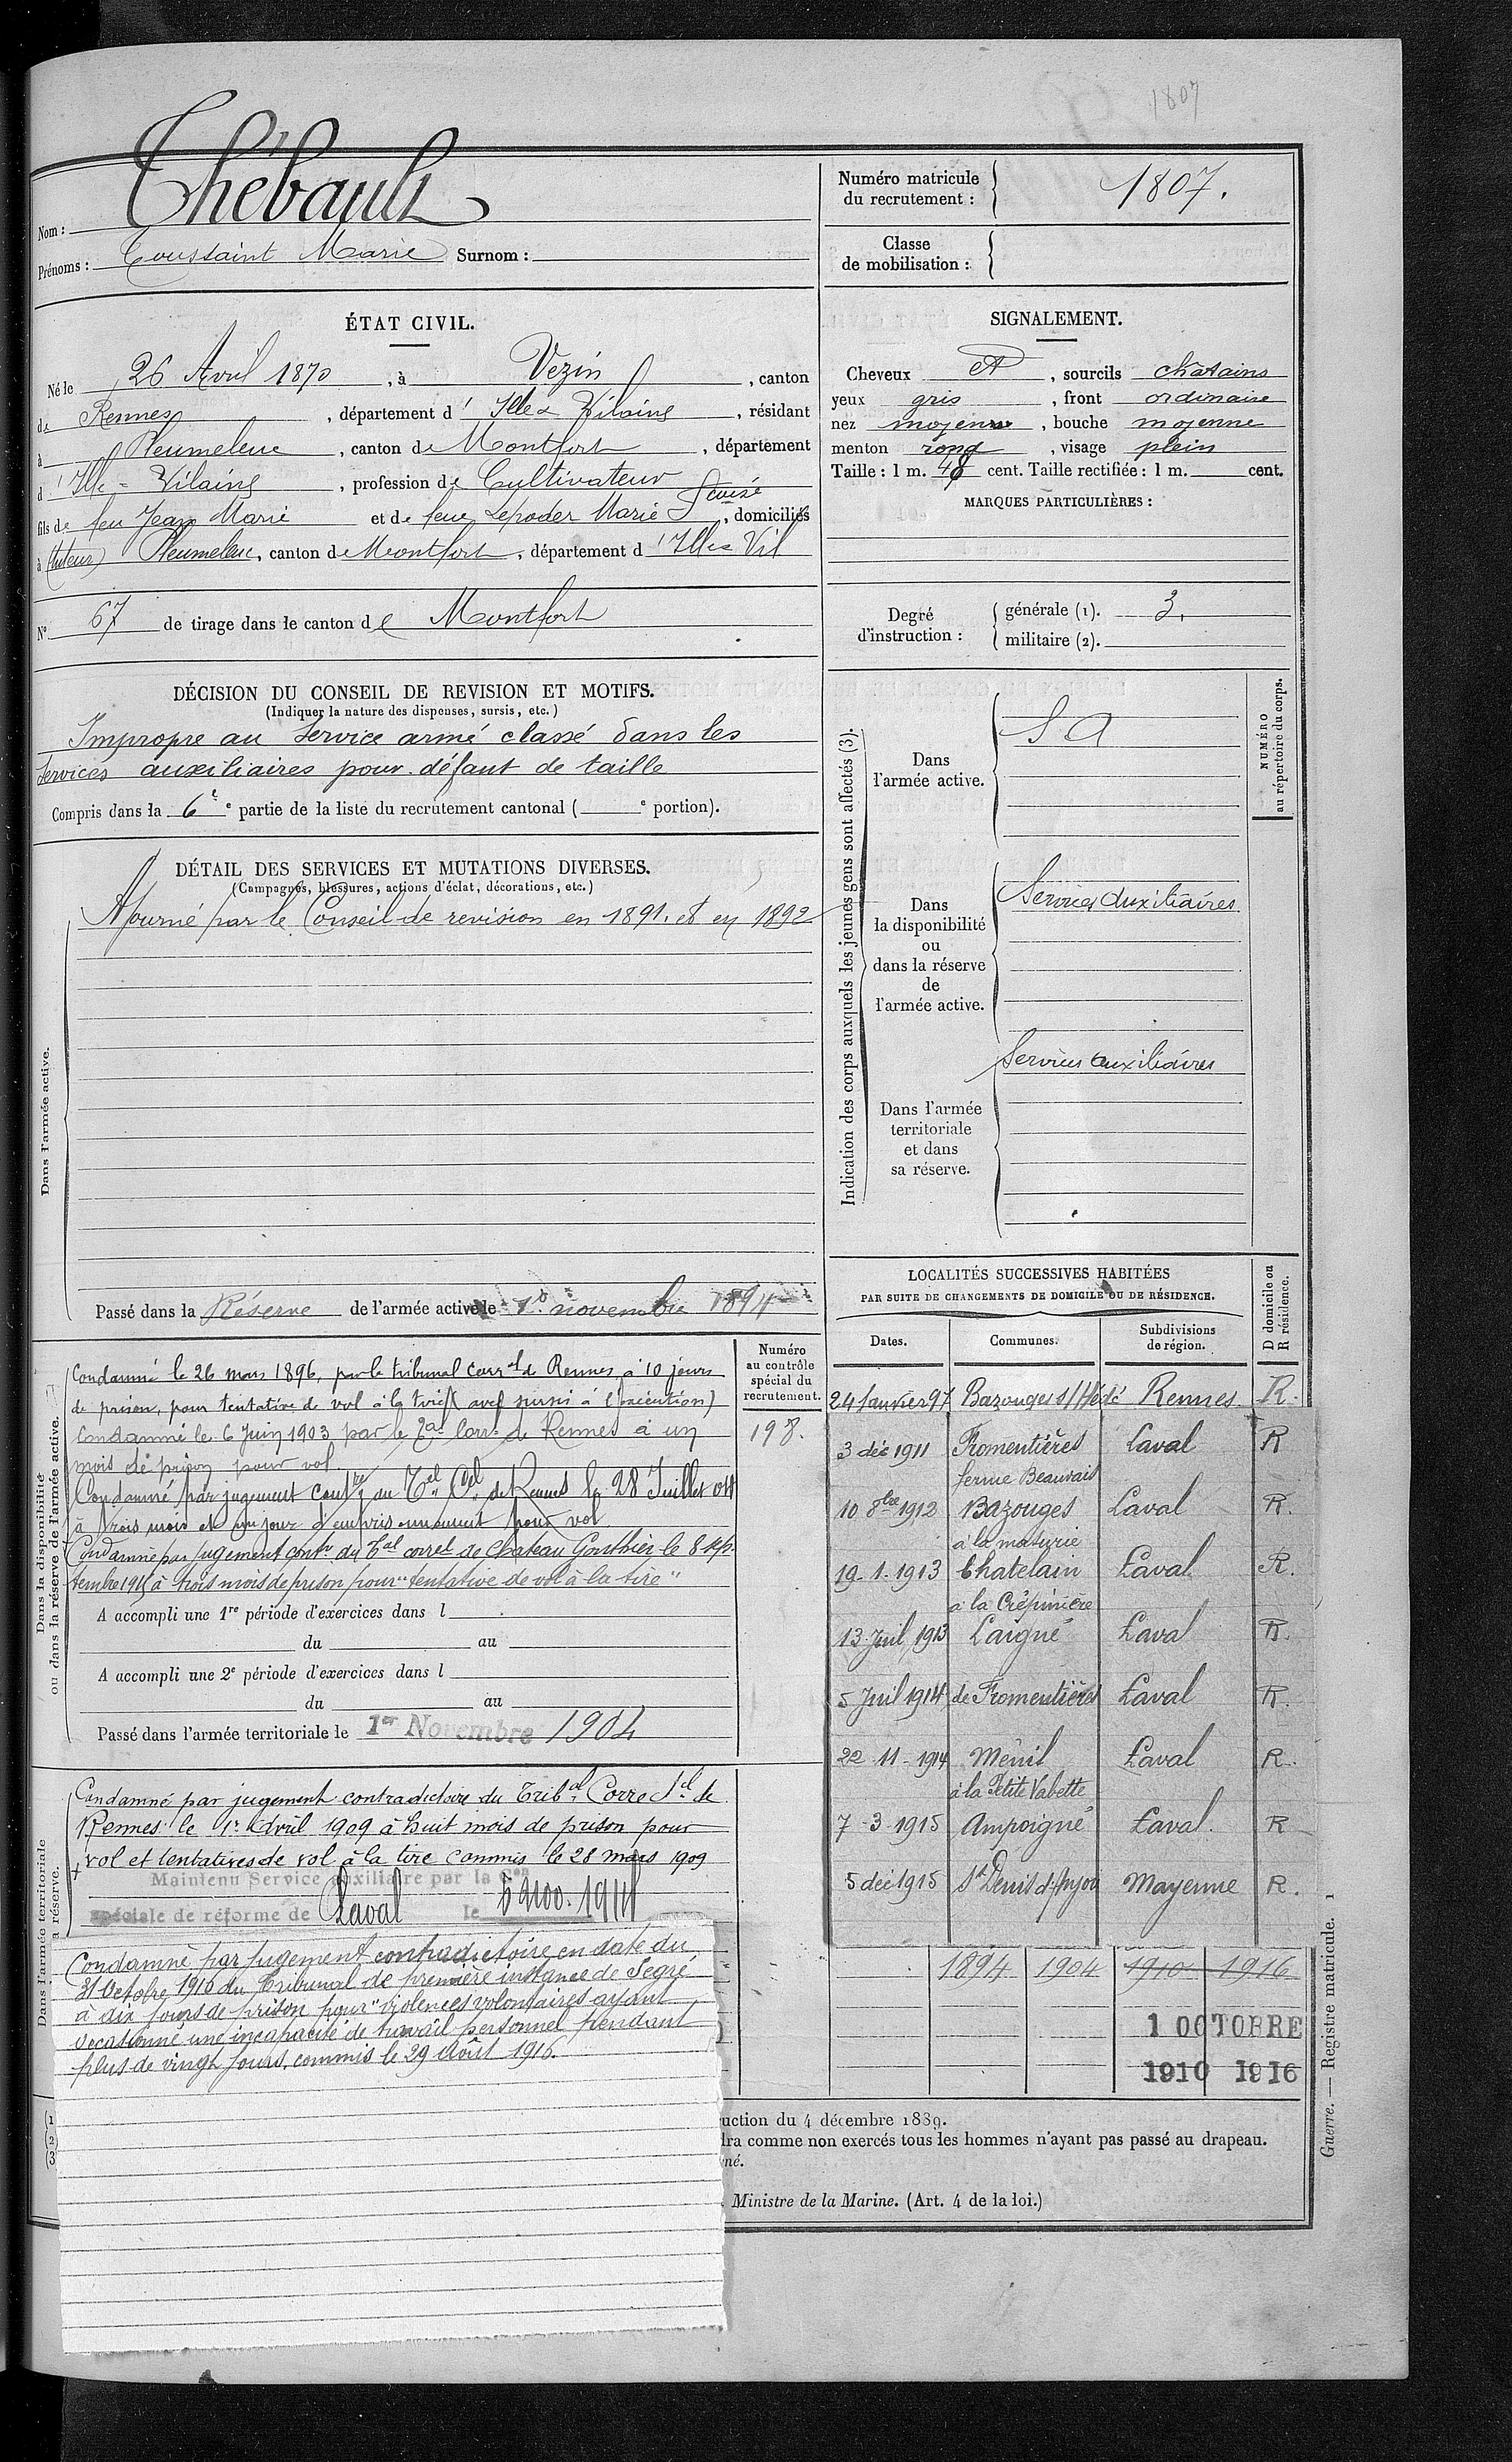 1807
Nom : Thébault
Prénoms : Toussaint Marie Surnom :
Numéro matricule
du recrutement : 1807.
Classe
de mobilisation :
ÉTAT CIVIL.
Né le 26 Avril 1870, à Vezin, canton
de Rennes, département d'Ille & Vilaine, résidant
à Pleumeleuc, canton de Montfort, département
d'Ille-Vilaine, profession de Cultivateur
fils de feu Jean Marie et de feue Lepoder Marie Louise, domiciliés
à (tuteur) Pleumeleuc, canton de Montfort, département d'Ille & Vil
N° 67 de tirage dans le canton de Montfort
SIGNALEMENT.
Cheveux et, sourcils chatains
yeux gris, front ordinaire
nez moyen, bouche moyenne
menton rond, visage plein
Taille : 1 m. 48 cent. Taille rectifiée : 1 m. cent.
MARQUES PARTICULIÈRES :
Degré
d'instruction :
générale (1). 3.
militaire (2).
DÉCISION DU CONSEIL DE REVISION ET MOTIFS.
(Indiquer la nature des dispenses, sursis, etc.)
Impropre au Service armé classé dans les
Services auxiliaires pour défaut de taille
Compris dans la 6e e partie de la liste du recrutement cantonal ( e portion).
DÉTAIL DES SERVICES ET MUTATIONS DIVERSES.
(Campagnes, blessures, actions d'éclat, décorations, etc.)
Ajourné par le Conseil de revision en 1891. et en 1892
Dans l'armée active.
Passé dans la Réserve de l'armée active le 1er novembre 1894
Indication des corps auxquels les jeunes gens sont affectés (3).
Dans
l'armée active.
S A
NUMÉRO
au répertoire du corps.
Dans
la disponibilité
ou
dans la réserve
de
l'armée active.
Services Auxiliaires
Dans l'armée
territoriale
et dans
sa réserve.
Services auxiliaires
Dans la disponibilité
ou dans la réserve de l'armée active.
Condamné le 26 mars 1896, par le tribunal Corr.el de Rennes, à 10 jours
de prison, pour tentative de vol à la tire (avec sursis à l'exécution)
Condamné le 6 Juin 1903 par le Tal Corr. de Rennes à un
mois de prison pour vol.
Condamné par jugement contre du Tel Cel de Rennes le 28 Juillet 04
à trois mois et un jour d'emprisonnement pour vol
Condamné par jugement contr. du Tal correl de Chateau Gonthier le 8 sep-
tembre 1915 à trois mois de prison pour "tentative de vol à la tire"
A accompli une 1re période d'exercices dans l
du au
A accompli une 2e période d'exercices dans l
du au
Passé dans l'armée territoriale le 1er Novembre 1904
Numéro
au contrôle
spécial du
recrutement.
198.
Dans l'armée territoriale
a réserve.
Condamné par jugement contradictoire du Tribal Correctel de
Rennes le 1er Avril 1909 à huit mois de prison pour
vol et tentatives de vol à la tire commis le 28 mars 1909
Maintenu Service Auxiliaire par la Con
spéciale de réforme de Laval le
Condamné par jugement contradictoire en date du
31 Octobre 1916 du Tribunal de première instance de Segré
à dix jours de prison pour "violences volontaires ayant
occasionné une incapacité de travail personnel pendant
plus de vingt jours, commis le 29 Août 1916.
LOCALITÉS SUCCESSIVES HABITÉES
PAR SUITE DE CHANGEMENTS DE DOMICILE OU DE RÉSIDENCE.
Dates. Communes. Subdivisions
de région. D domicile ou
R résidence.
24 Janvier 97 Bazouges s/ Hédé Rennes R.
3 déc 1911 Fromentières Laval R
ferme Beauvais
10 8bre 1912 Bazouges Laval R.
19-1-1913 Chatelain Laval R.
à la Crépinière
13 Juil 1913 Laigné Laval R.
5 Juil 1914 de Fromentières Laval R.
22-11-1914 Ménil Laval R.
à la Petite Vabette
7-3-1915 Ampoigné Laval. R
5 déc 1915 St Denis d'Anjou Mayenne R.
1894 1904 1910 1916
1 OCTOBRE
1910 1916
(1
(2
(3
uction du 4 décembre 1889.
dra comme non exercés tous les hommes n'ayant pas passé au drapeau.
né.
Ministre de la Marine. (Art. 4 de la loi.)
Guerre. — Registre matricule. 1